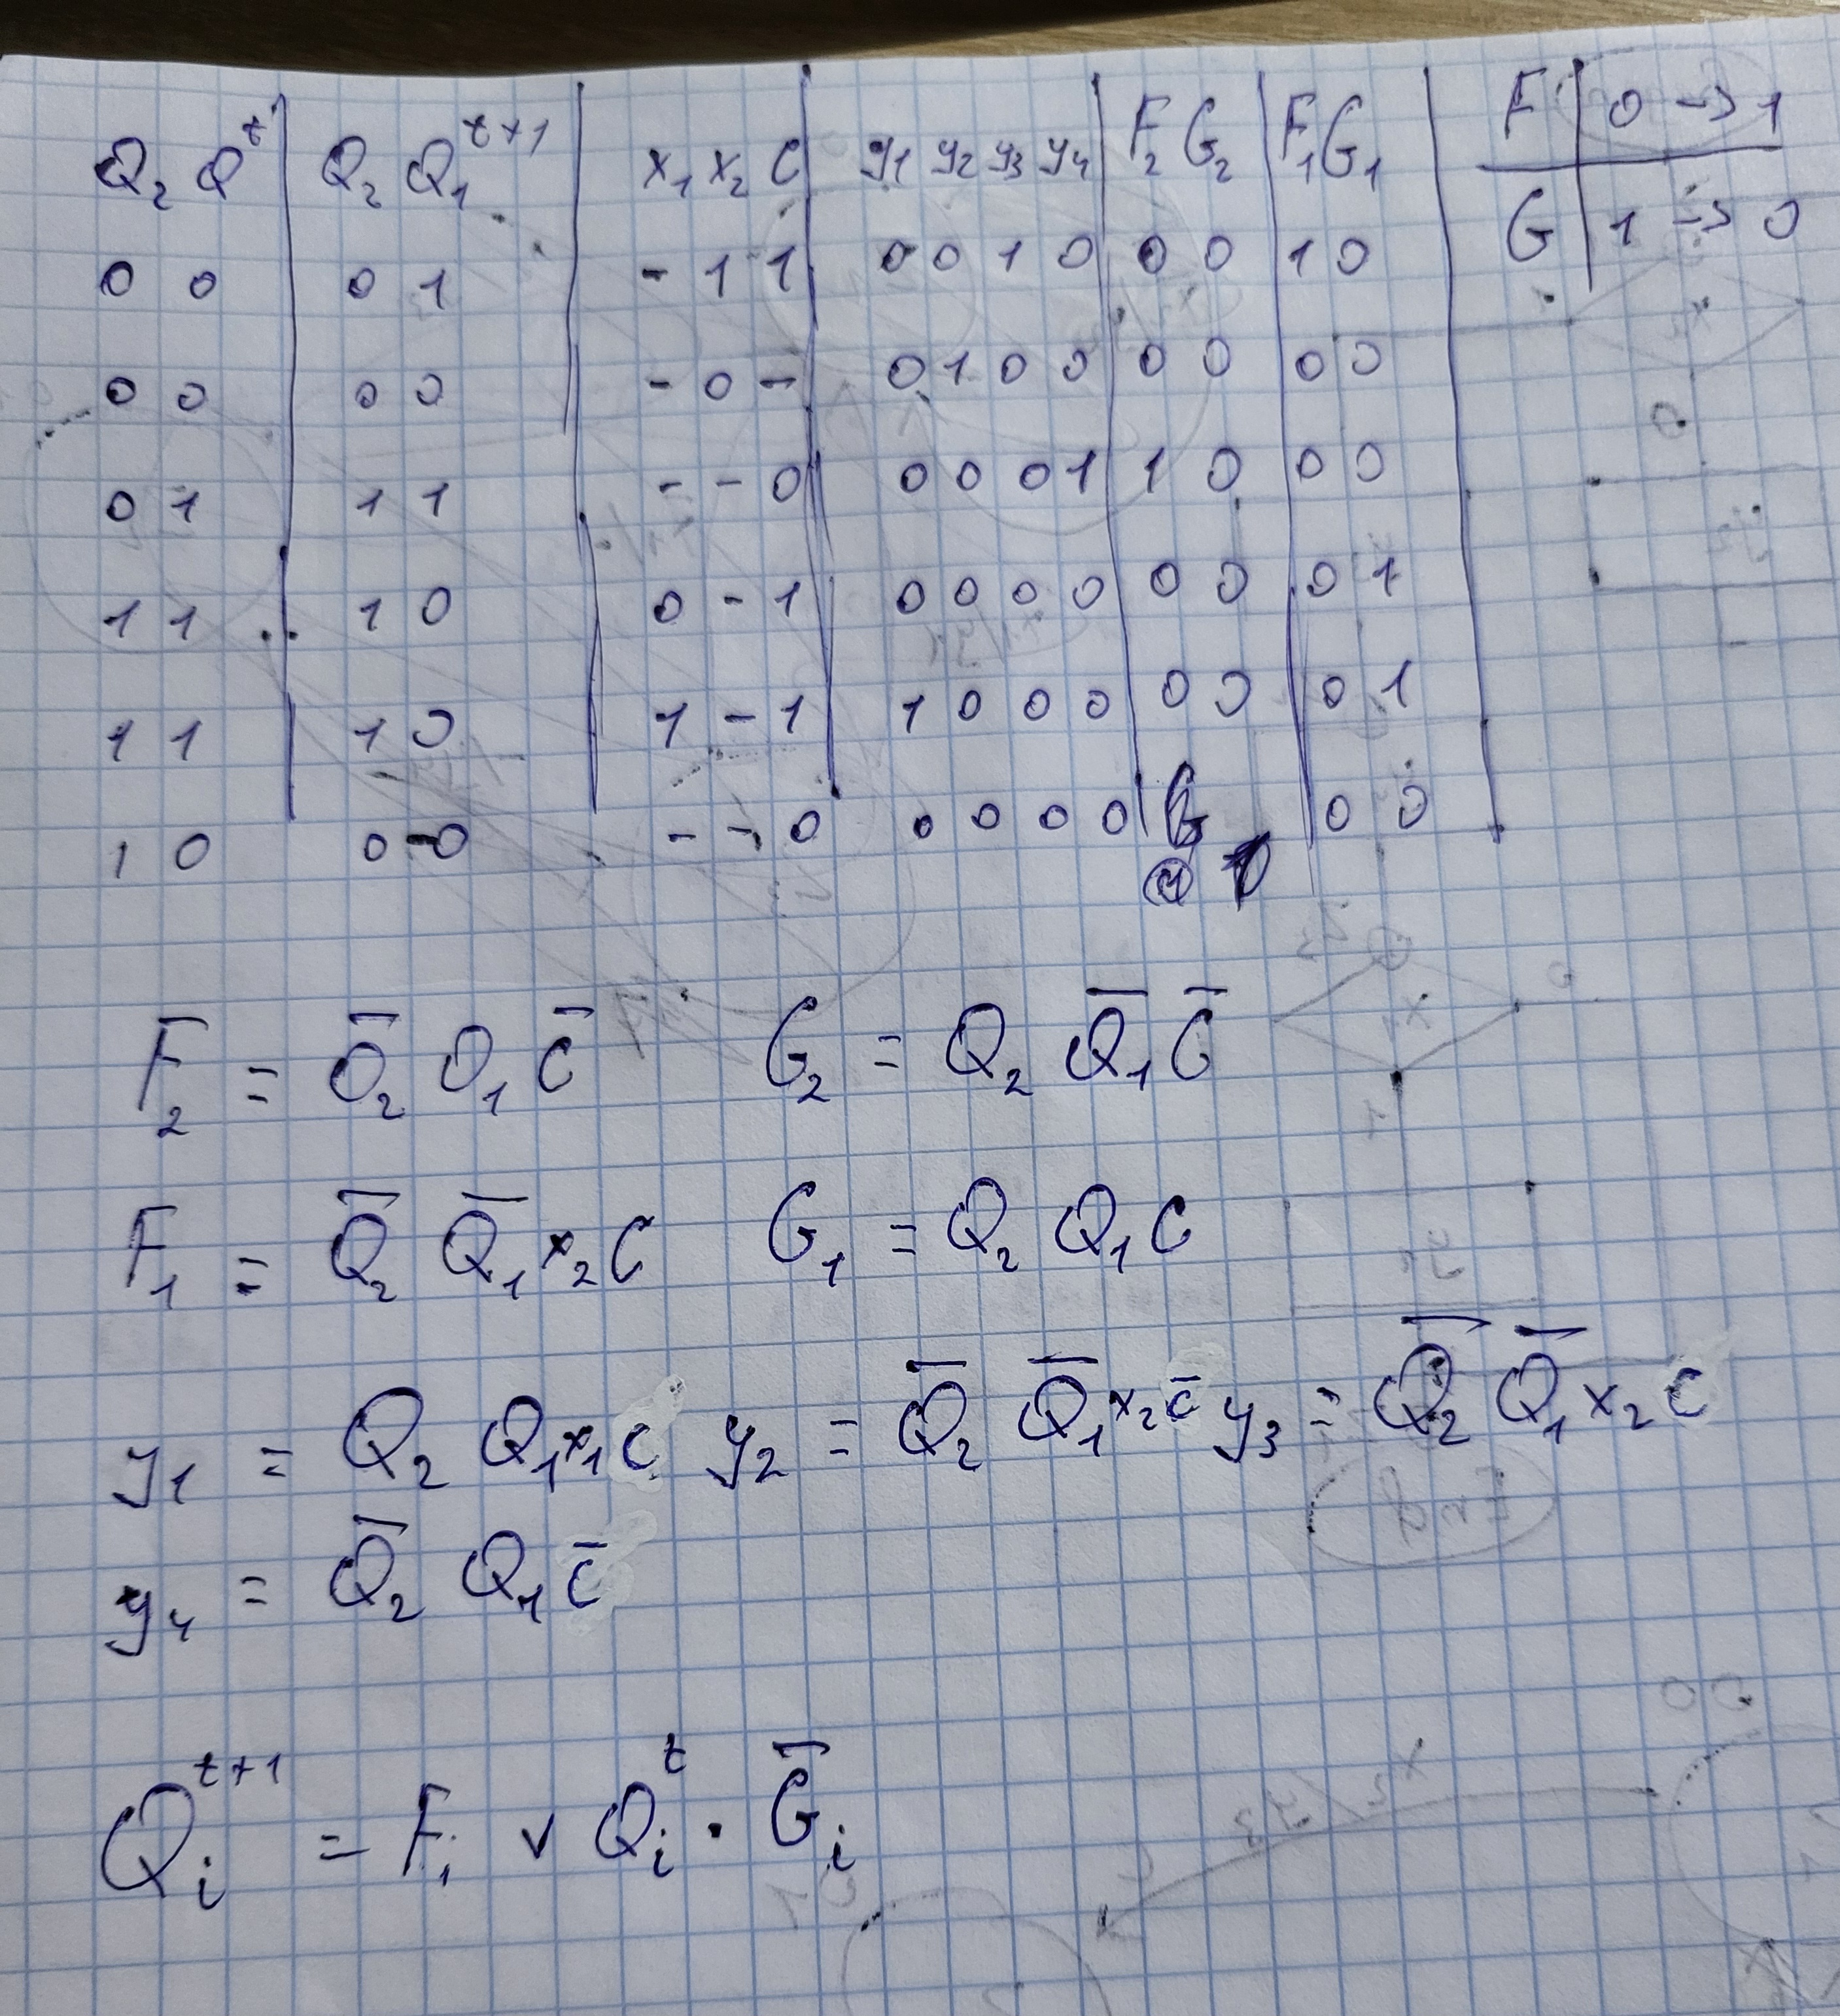 Q₂ Qᵗ | Q₂ Q₁ᵗ⁺¹ | x₁ x₂ C | y₁ y₂ y₃ y₄ | F₂ G₂ | F₁ G₁ | F | 0 → 1
0 0 | 0 1 | - 1 1 | 0 0 1 0 | 0 0 | 1 0 | G | 1 → 0
0 0 | 0 0 | - 0 - | 0 1 0 0 | 0 0 | 0 0
0 1 | 1 1 | - - 0 | 0 0 0 1 | 1 0 | 0 0
1 1 | 1 0 | 0 - 1 | 0 0 0 0 | 0 0 | 0 1
1 1 | 1 0 | 1 - 1 | 1 0 0 0 | 0 0 | 0 1
1 0 | 0 0 | - - 0 | 0 0 0 0 | | 0 0
F₂ = Q̅₂ Q₁ C̅ G₂ = Q₂ Q̅₁ C̅
F₁ = Q̅₂ Q̅₁ x₂ C G₁ = Q₂ Q₁ C
y₁ = Q₂ Q₁ x₁ C y₂ = Q̅₂ Q̅₁ x₂ C̅ y₃ = Q̅₂ Q̅₁ x₂ C
y₄ = Q̅₂ Q₁ C̅
Qᵢᵗ⁺¹ = Fᵢ ∨ Qᵢᵗ · G̅ᵢ